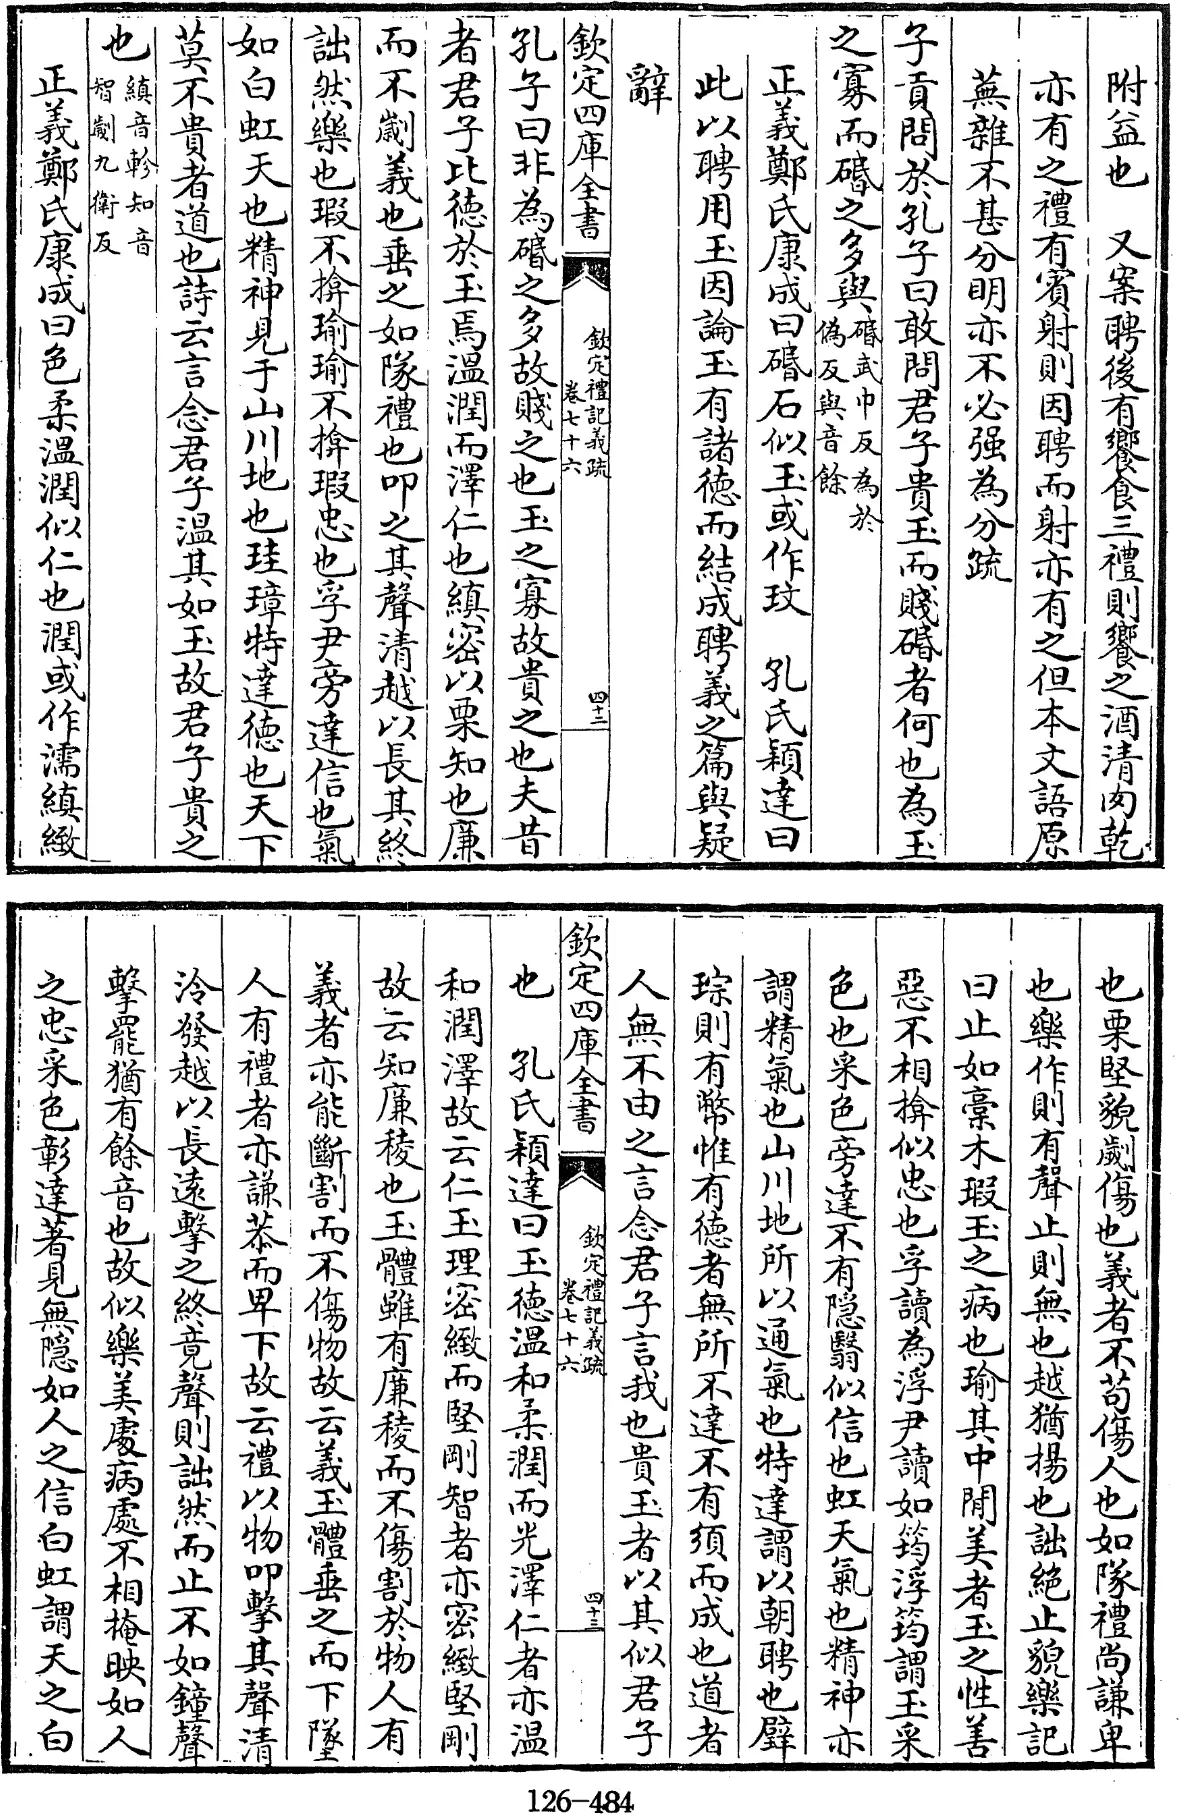 附益也　又案聘後有饗食三禮則饗之酒清肉乾
亦有之禮有賓射則因聘而射亦有之但本文語原
蕪雜不甚分明亦不必强為分疏
子貢問於孔子曰敢問君子貴玉而賤碈者何也為玉
之寡而碈之多與碈武巾反為於
偽反與音餘
正義鄭氏康成曰碈石似玉或作玟　孔氏穎達曰
此以聘用玉因論玉有諸徳而結成聘義之篇與疑
辭
欽定四庫全書
欽定禮記義疏
卷七十六
四十二
孔子曰非為碈之多故賤之也玉之寡故貴之也夫昔
者君子比徳於玉焉溫潤而澤仁也縝密以栗知也廉
而不劌義也垂之如隊禮也叩之其聲清越以長其終
詘然樂也瑕不揜瑜瑜不揜瑕忠也孚尹旁達信也氣
如白虹天也精神見于山川地也珪璋特達徳也天下
莫不貴者道也詩云言念君子溫其如玉故君子貴之
也縝音軫知音
智劌九衛反
正義鄭氏康成曰色柔溫潤似仁也潤或作濡縝緻
也栗堅貌劌傷也義者不苟傷人也如隊禮尚謙卑
也樂作則有聲止則無也越猶揚也詘絶止貌樂記
曰止如槀木瑕玉之病也瑜其中閒美者玉之性善
惡不相揜似忠也孚讀為浮尹讀如筠浮筠謂玉采
色也采色旁達不有隠翳似信也虹天氣也精神亦
謂精氣也山川地所以通氣也特達謂以朝聘也璧
琮則有幣惟有徳者無所不達不有須而成也道者
人無不由之言念君子言我也貴玉者以其似君子
欽定四庫全書
欽定禮記義疏
卷七十六
四十三
也　孔氏穎達曰玉徳溫和柔潤而光澤仁者亦溫
和潤澤故云仁玉理密緻而堅剛智者亦密緻堅剛
故云知廉稜也玉體雖有廉稜而不傷割於物人有
義者亦能斷割而不傷物故云義玉體垂之而下墜
人有禮者亦謙恭而卑下故云禮以物叩擊其聲清
泠發越以長遠擊之終竟聲則詘然而止不如鐘聲
擊罷猶有餘音也故似樂美處病處不相掩映如人
之忠采色彰達著見無隠如人之信白虹謂天之白
126-484